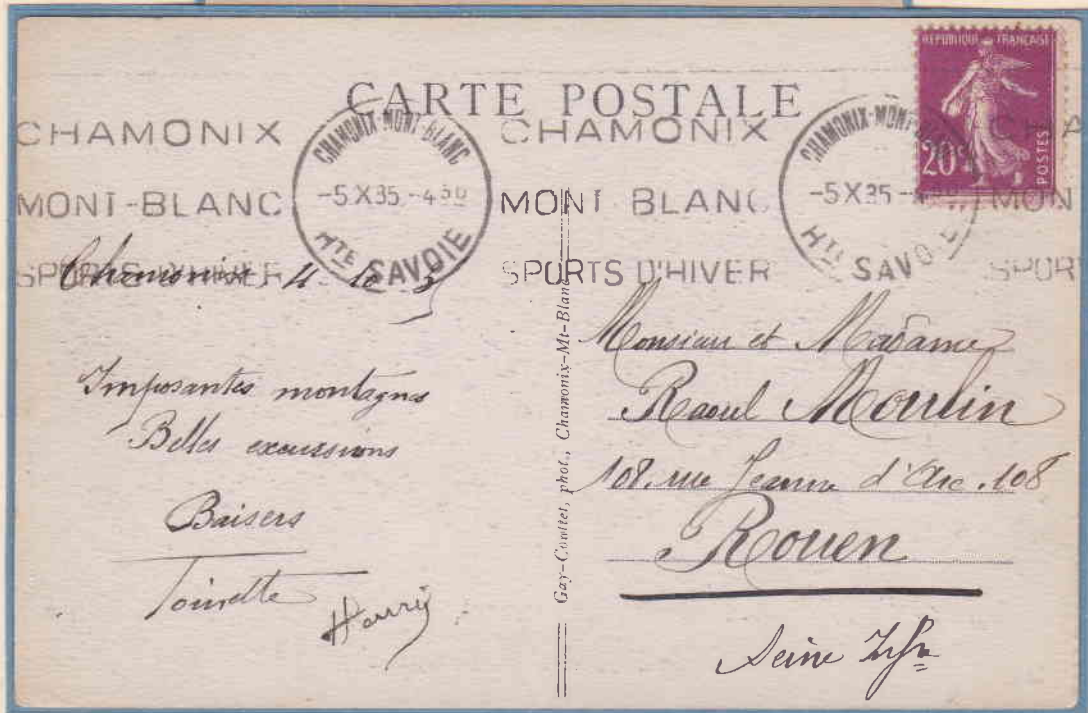 CARTE POSTALE
RÉPUBLIQUE FRANÇAISE
20c
POSTES
CHAMONIX
MONT-BLANC
SPORTS D'HIVER
CHAMONIX-MONT-BLANC
-5 X 35 -4 30
HTE SAVOIE
CHAMONIX
MONT BLANC
SPORTS D'HIVER
CHAMONIX-MONT
-5 X 35
HTE SAVOIE
CHA
MON
SPORT
Chamonix 4 10 3
Imposantes montagnes
Belles excursions
Baisers
Toinette
Henry
Gay-Couttet, phot., Chamonix-Mt-Blanc
Monsieur et Madame
Raoul Moulin
108. rue Jeanne d'Arc. 108
Rouen
Seine Infre